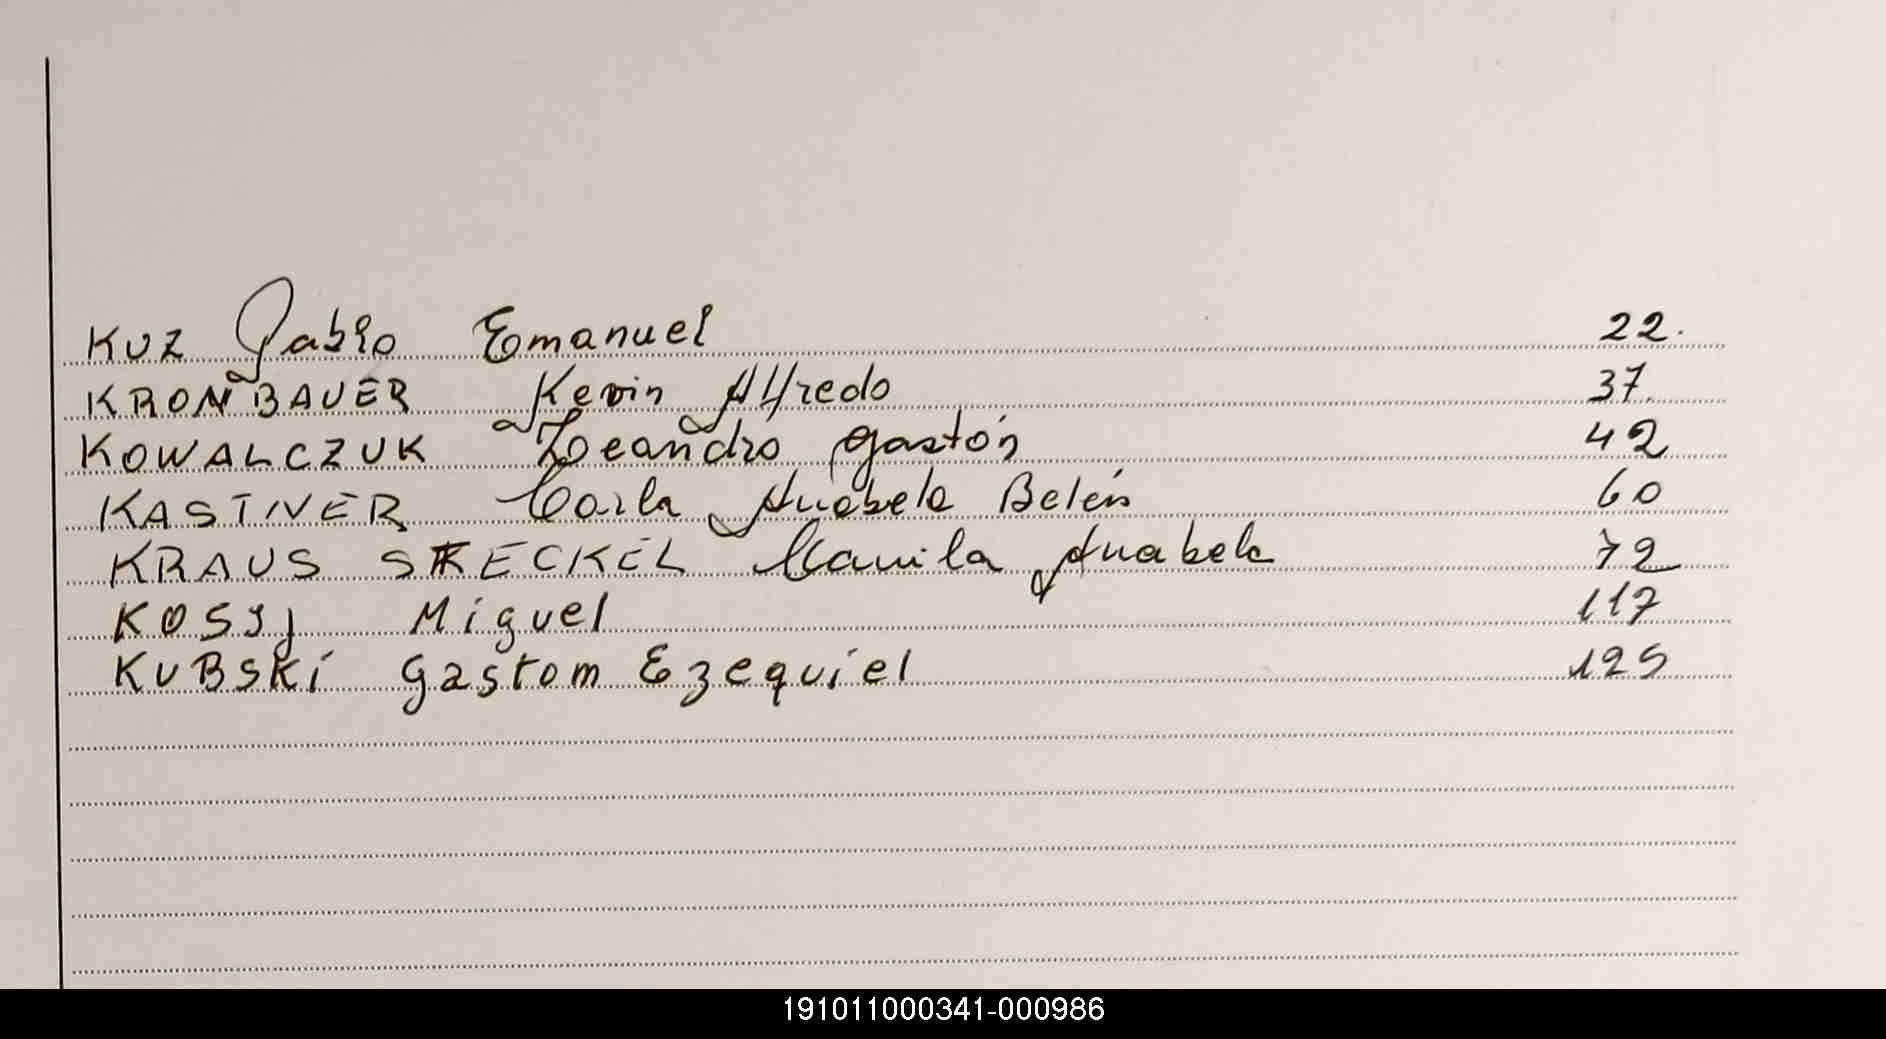 KUZ Pablo Emanuel 22.
KROMBAUER Kevin Alfredo 37
KOWALCZUK Leandro Gastón 42
KASTINER Carla Anabela Belén 60
KRAUS STECKEL Camila Anabela 72
KOSYJ Miguel 117
KUBSKi Gastom Ezequiel 125
191011000341-000986